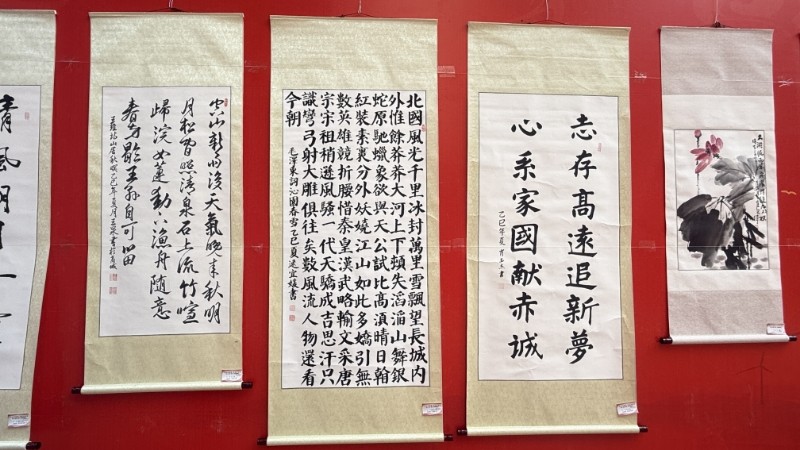 清風明月一
空山新雨後天氣晚来秋明
月松間照清泉石上流竹喧
歸浣女蓮動下漁舟随意
春芳歇王孫自可留
王維山居秋暝乙巳年夏月
北國風光千里冰封萬里雪飄望長城内
外惟餘莽莽大河上下頓失滔滔山舞銀
蛇原馳蠟象欲與天公試比髙須晴日看
紅裝素裹分外妖嬈江山如此多嬌引無
數英雄競折腰惜秦皇漢武略輸文采唐
宗宋祖稍遜風騷一代天驕成吉思汗只
識彎弓射大雕俱往矣數風流人物還看
今朝
毛澤東詞沁園春雪乙巳夏
志存髙遠追新夢
心系家國献赤城
乙巳年夏